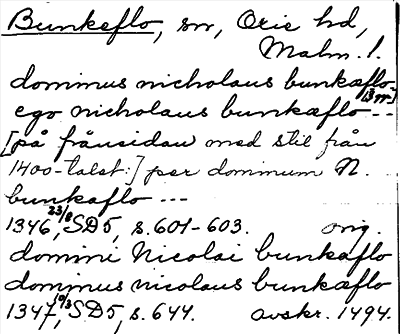 Bunkeflo, sn, Oxie hd,
Malm. l.
dominus nicholaus bunkæflo--
ego nicholaus bunkæflo--
[på frånsidan med stil från
1400-talet:] per dominum N.
bunkaflo ---
1346 23/8, SD5, s. 601-603. orig.
domini Nicolai bunkaflo
dominus nicolaus bunkæflo
1347 10/3, SD5, s. 644. avskr. 1494.